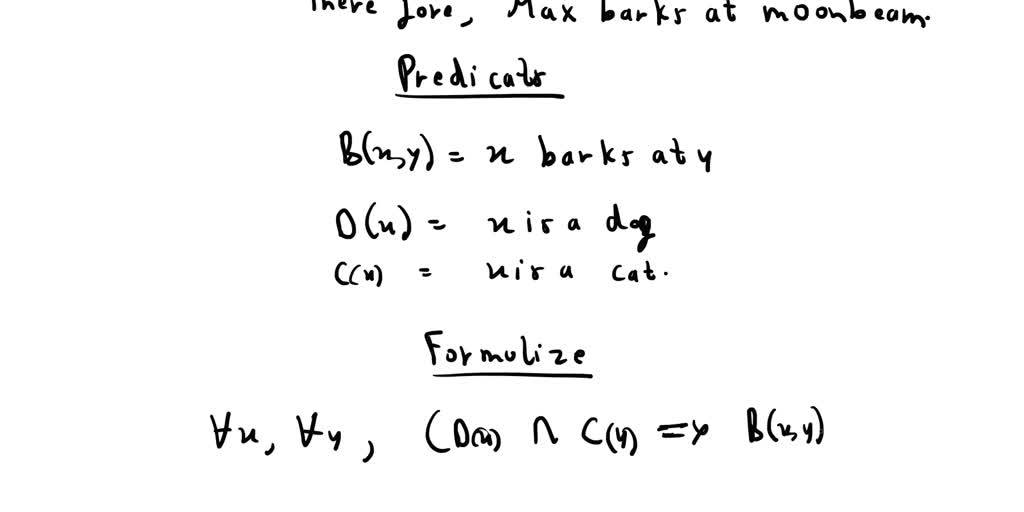 There fore, Max barks at moonbeam.
Predicats
B(x,y) = x barks at y
D(x) = x is a dog
C(x) = x is a cat.
Formulize
∀x, ∀y, (D(x) ∩ C(y) => B(x,y)